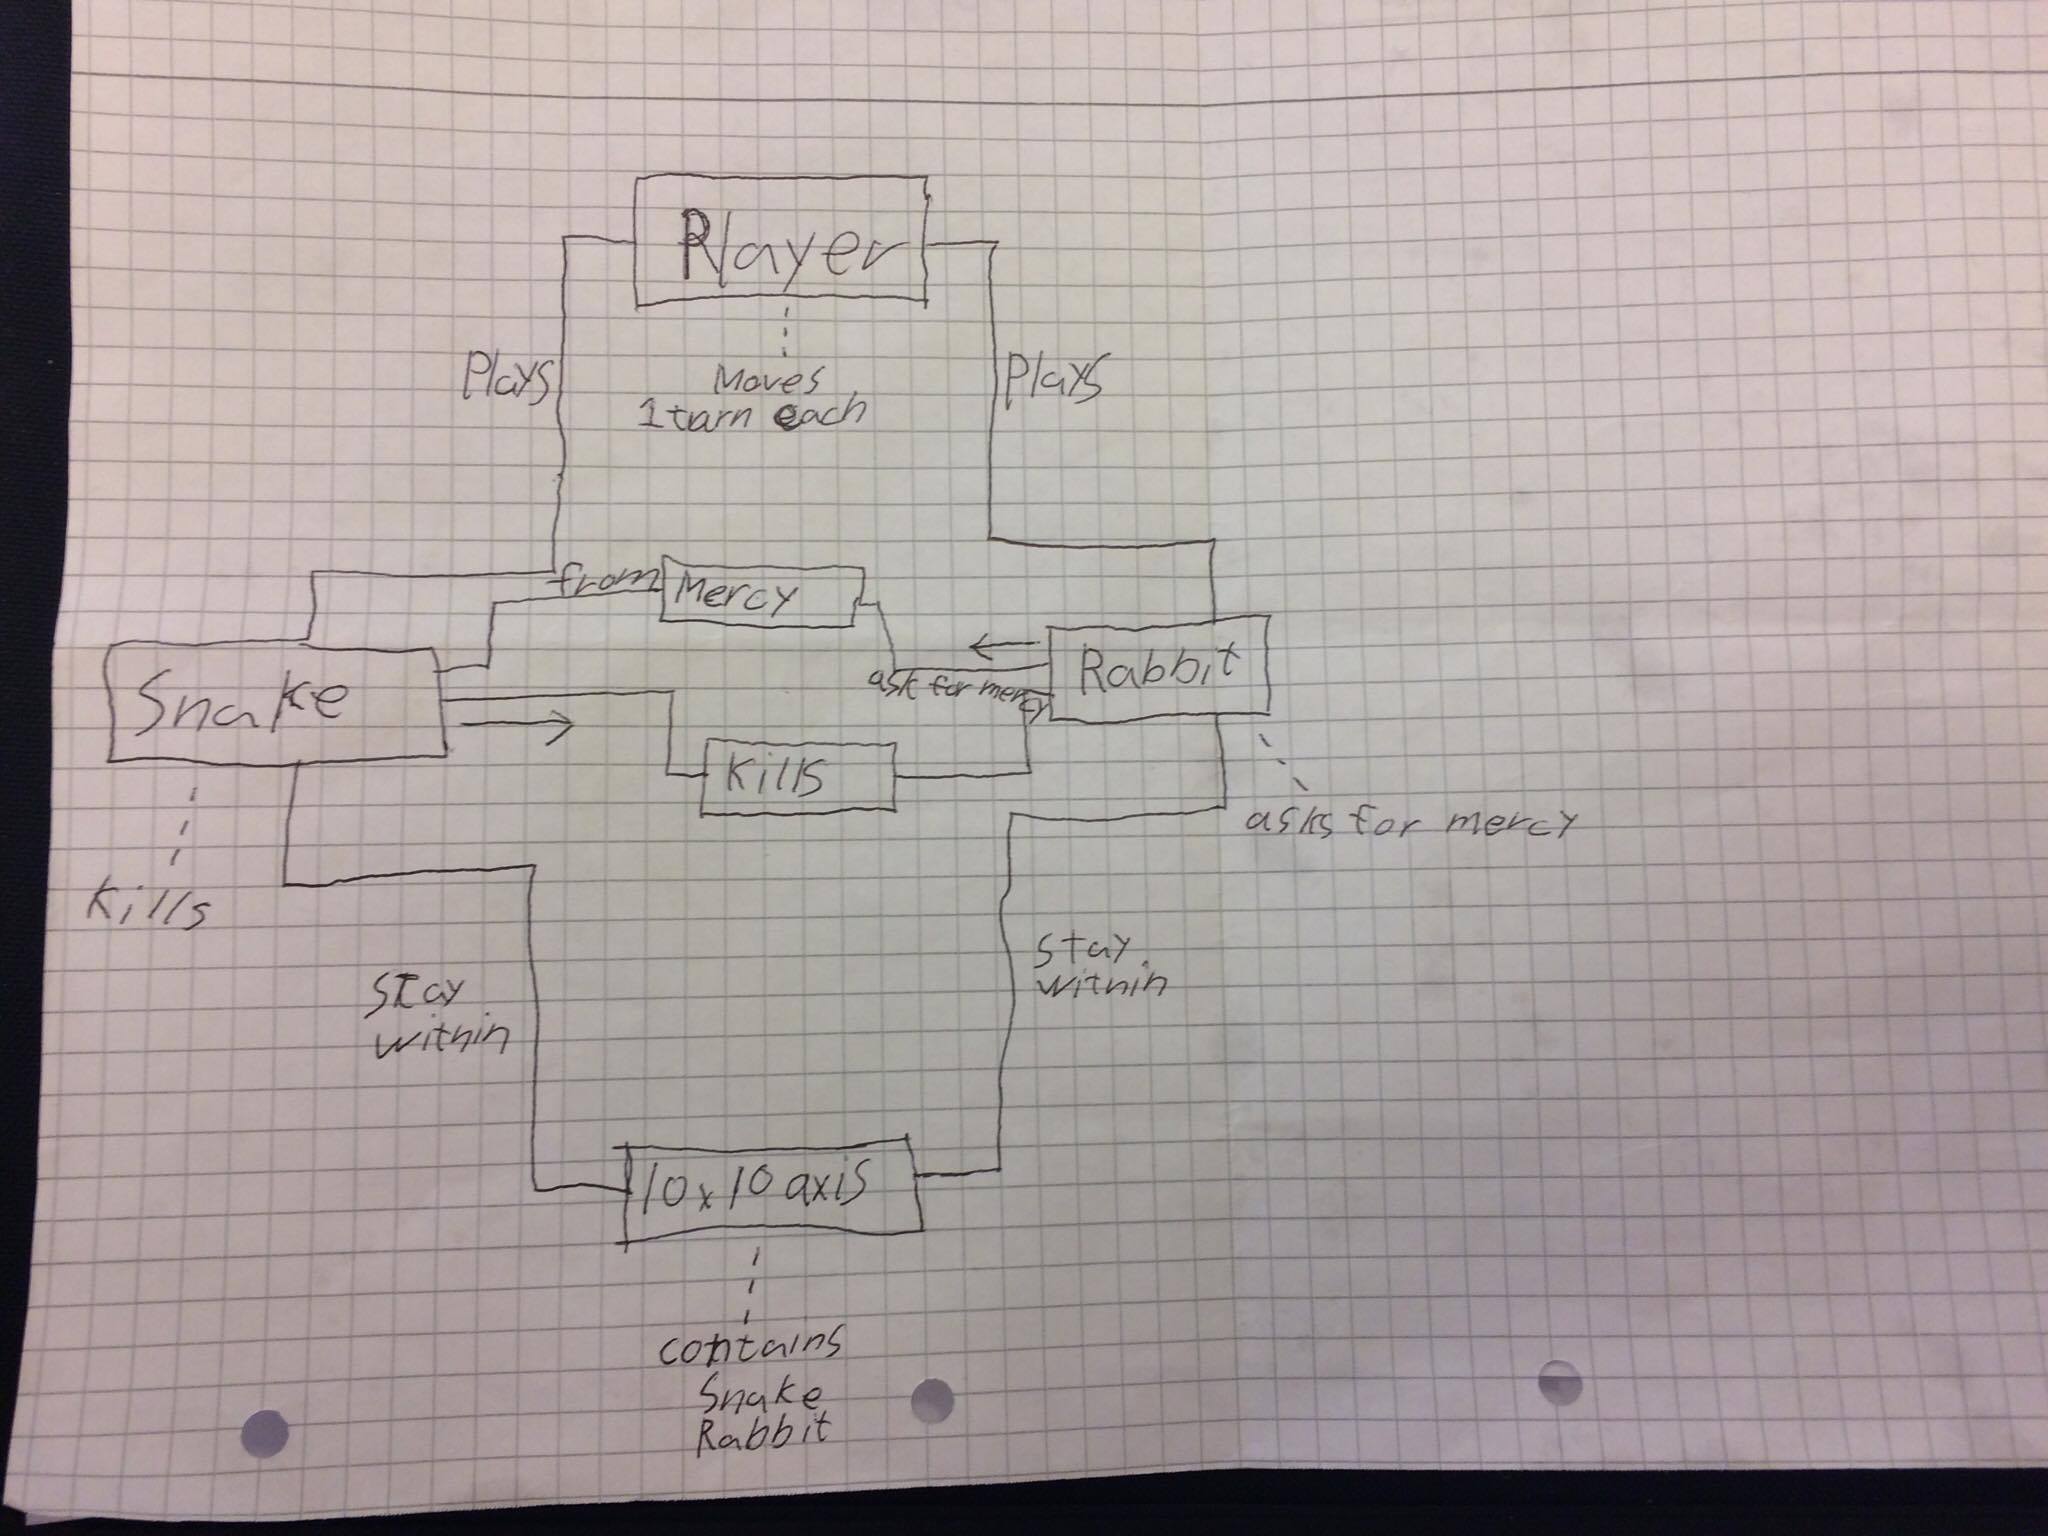 Player
Plays
Moves
1 turn each
Plays
from
Mercy
Snake
Rabbit
ask for mercy
Kills
asks for mercy
Kills
Stay
within
Stay
within
10x10 axis
contains
Snake
Rabbit